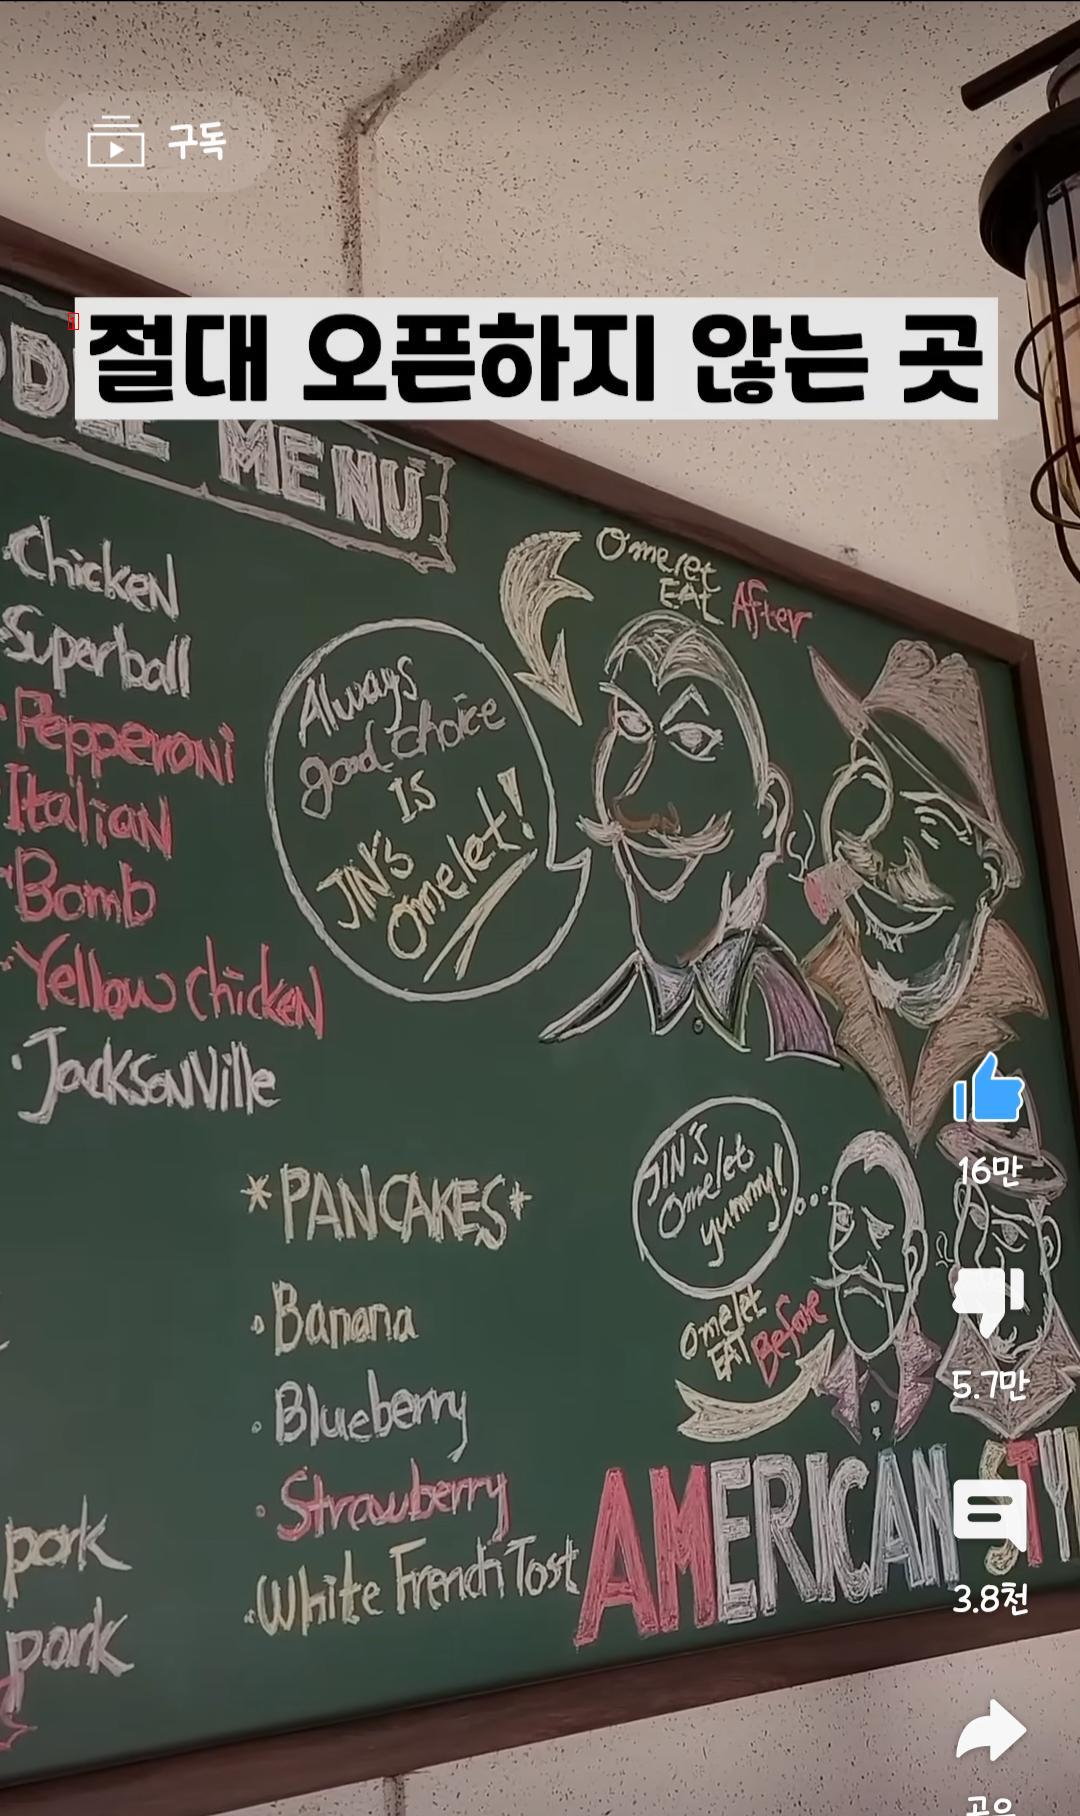 구독
절대 오픈하지 않는 곳
MENU
Chicken
Superball
Pepperoni
Italian
Bomb
Yellow chicken
Jacksonville
Omelet
EAT After
Always
good choice
IS
JIN'S
omelet!
*PANCAKES*
Banana
Blueberry
Strawberry
White French Tost
JIN'S
Omelet
yummy!
omelet
EAT Before
AMERICAN
pork
pork
16만
5.7만
3.8천